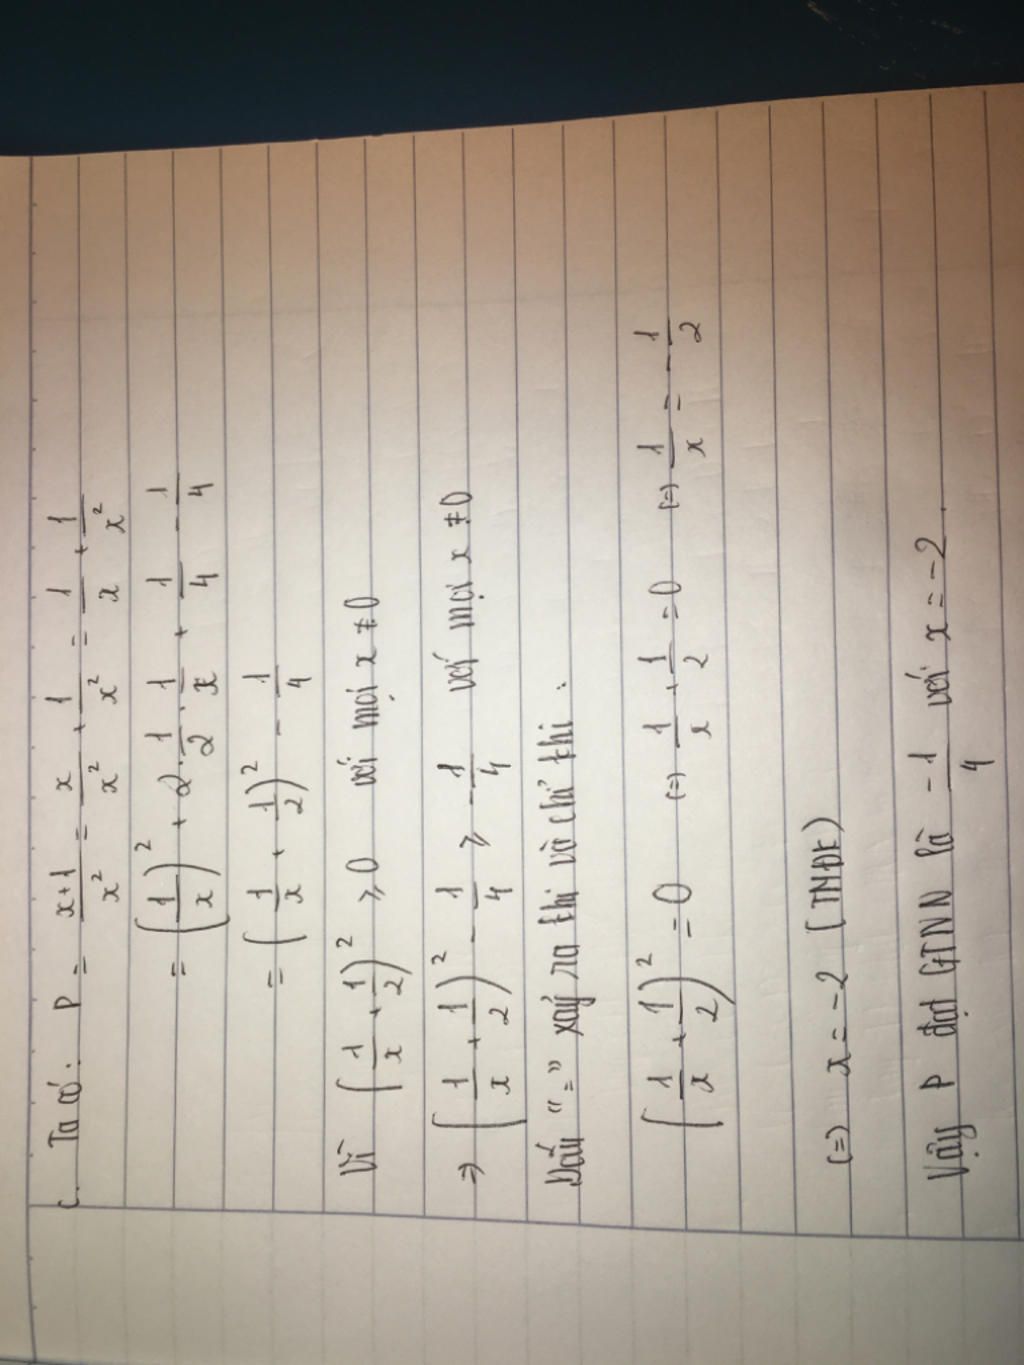 c. Ta có: P = \frac{x+1}{x^2} = \frac{x}{x^2} + \frac{1}{x^2} = \frac{1}{x} + \frac{1}{x^2}
= (\frac{1}{x})^2 + 2 \cdot \frac{1}{2} \cdot \frac{1}{x} + \frac{1}{4} - \frac{1}{4}
= (\frac{1}{x} + \frac{1}{2})^2 - \frac{1}{4}
Vì (\frac{1}{x} + \frac{1}{2})^2 ⩾ 0 với mọi x ≠ 0
⇒ (\frac{1}{x} + \frac{1}{2})^2 - \frac{1}{4} ⩾ -\frac{1}{4} với mọi x ≠ 0
Dấu "=" xảy ra khi và chỉ khi:
(\frac{1}{x} + \frac{1}{2})^2 = 0 (=) \frac{1}{x} + \frac{1}{2} = 0 (=) \frac{1}{x} = -\frac{1}{2}
(=) x = -2 (TMĐK)
Vậy P đạt GTNN là -\frac{1}{4} với x = -2.